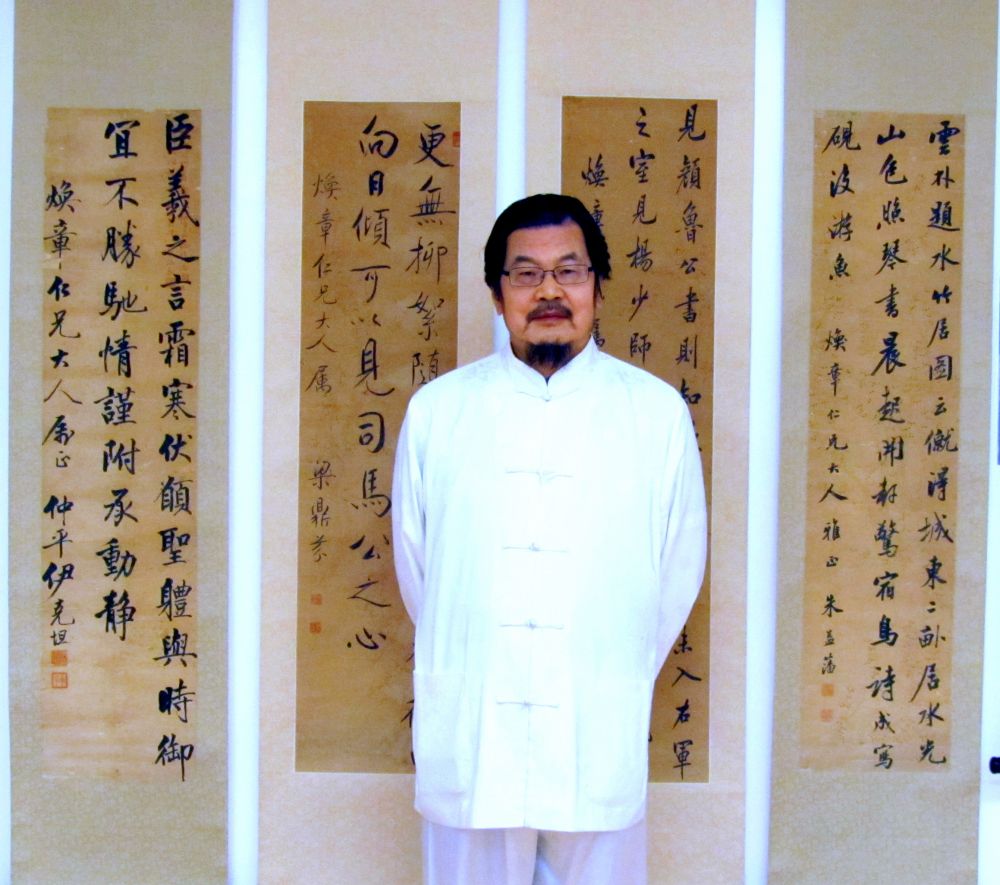 雲林題水竹居圖云僦得城東二畝居水光
山色照琴書晨起開軒驚宿鳥詩成寫
硯没游魚 煥章仁兄大人雅正 朱益藩
見顏魯公書則知 未入右軍
之室見楊少師
煥章
更無柳絮隨
向日傾可以見司馬公之心
煥章仁兄大人属 梁鼎芬
臣羲之言霜寒伏願聖體與時御
宜不勝馳情謹附承動靜
煥章仁兄大人屬正 仲平伊克坦